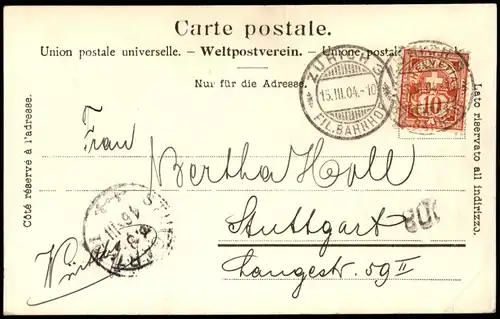 Carte postale.
Union postale universelle. – Weltpostverein. – Unione postale
Nur für die Adresse.
ZÜRICH 3
15.III.04.-10
FIL. BAHNHOF
HELVETIA
10
Côté réservé à l'adresse.
Lato riservato all indirizzo.
Frau
Bertha Holl
Stuttgart
Langestr. 59 II